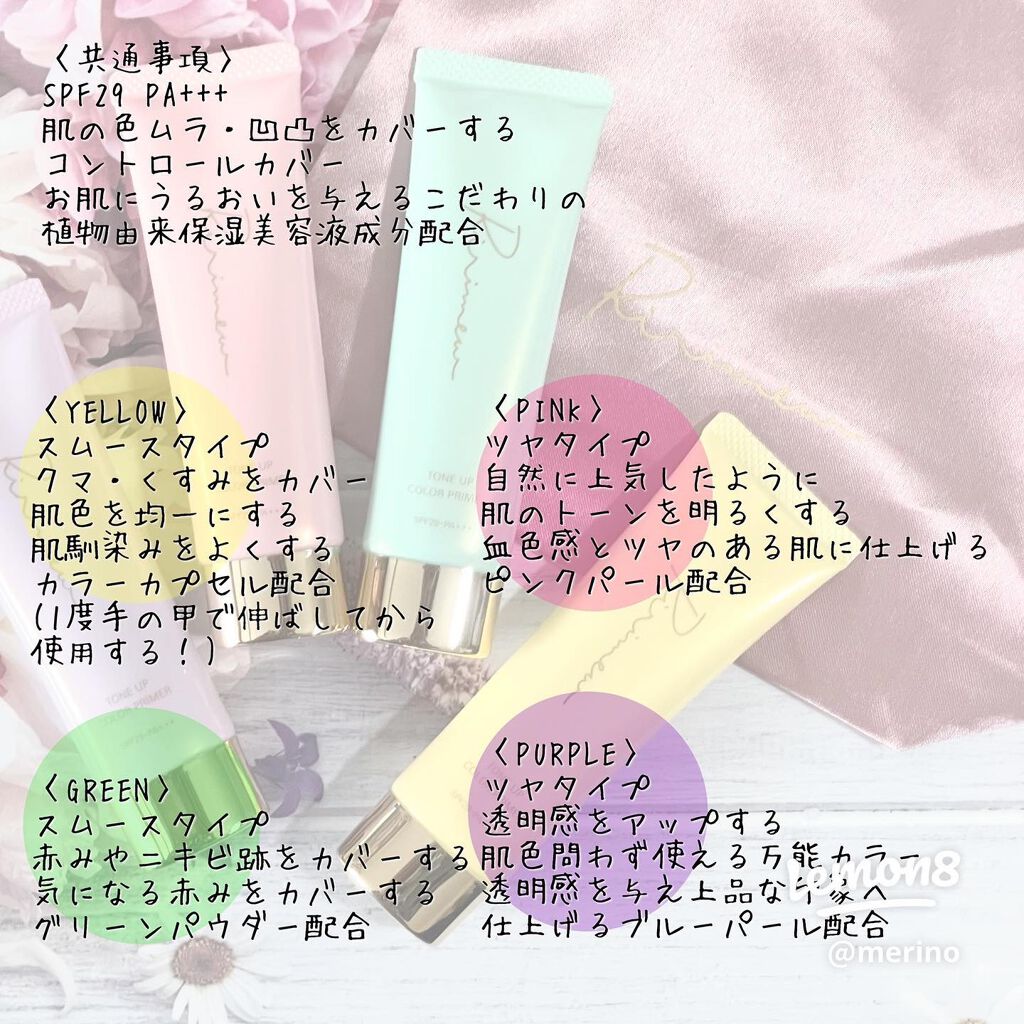 〈共通事項〉
SPF29 PA+++
肌の色ムラ・凹凸をカバーする
コントロールカバー
お肌にうるおいを与えるこだわりの
植物由来保湿美容液成分配合
Ririmew
Ririmew
TONE UP
COLOR PRIMER
SPF29・PA+++
〈YELLOW〉
スムースタイプ
クマ・くすみをカバー
肌色を均一にする
肌馴染みをよくする
カラーカプセル配合
(1度手の甲で伸ばしてから
使用する！)
〈PINK〉
ツヤタイプ
自然に上気したように
肌のトーンを明るくする
血色感とツヤのある肌に仕上げる
ピンクパール配合
Ririmew
TONE UP
COLOR PRIMER
SPF29・PA+++
〈GREEN〉
スムースタイプ
赤みやニキビ跡をカバーする
気になる赤みをカバーする
グリーンパウダー配合
〈PURPLE〉
ツヤタイプ
透明感をアップする
肌色問わず使える万能カラー
透明感を与え上品な印象へ
仕上げるブルーパール配合
Lemon8
@merino